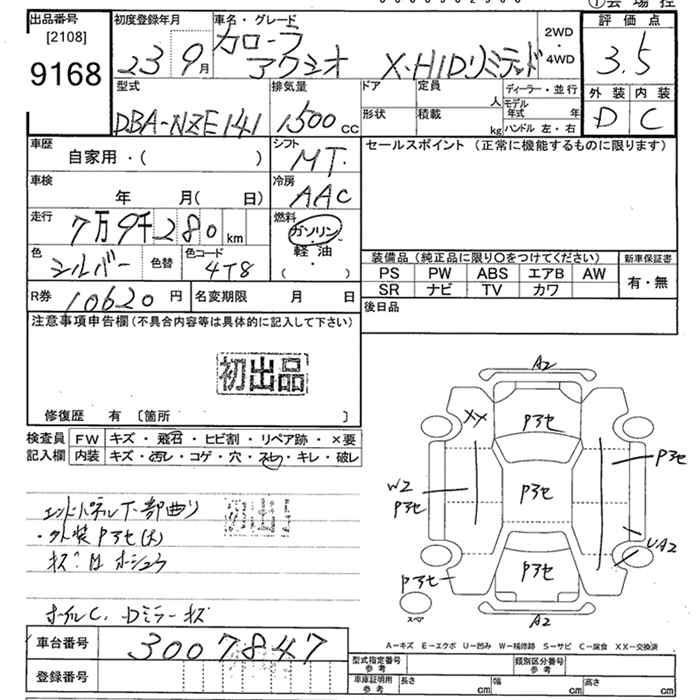 出品番号 初度登録年月 車名・グレード 評価点
[2108]
9168
23 9月 カローラ アクシオ X-HIDリミテッド 2WD・4WD 3.5
型式 排気量 ドア 定員 人 ディーラー・並行 外装 内装
DBA-NZE141 1500CC 形状 積載 kg モデル年式 年 ハンドル 左・右 D C
車歴 シフト セールスポイント (正常に機能するものに限ります)
自家用・( ) MT
車検 冷房
年 月( 日) AAC
走行 燃料
7万9千280 km ガソリン
色 色替 色コード 軽油
シルバー 4T8 ( ・ )
装備品(純正品に限り〇をつけてください) 新車保証書
PS PW ABS エアB AW 有・無
SR ナビ TV カワ
R券 10620円 名変期限 月 日
後日品
注意事項申告欄(不具合内容等は具体的に記入して下さい)
初出品
修復歴 有 〔箇所 〕
検査員 FW キズ・飛石・ヒビ割・リペア跡・×要
記入欄 内装 キズ・汚レ・コゲ・穴・スレ・キレ・破レ
エンドパネル下部曲り
・外装Pアセ(大)
キズ?
ホイルC. Dミラーキズ
A2
XX Pアセ
Pアセ
W2 Pアセ
Pアセ
UA2
Pアセ Pアセ
スペア
A2
車台番号 3007847
A-キズ E-エクボ U-凹み W-補修跡 S-サビ C-腐食 XX-交換済
登録番号
型式指定番号 参考 類別区分番号 参考
車庫証明用 参考 長さ cm 幅 cm 高さ cm